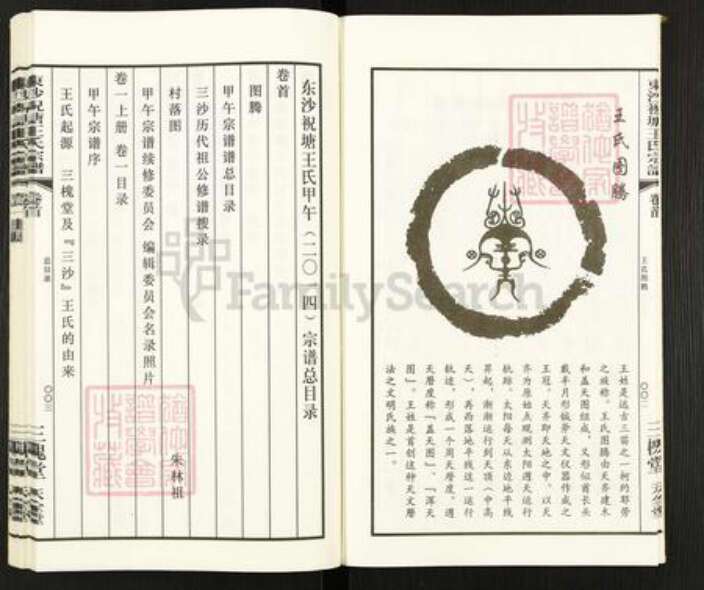 王氏图腾
王姓是远古三苗之一柯约耶劳
之族称。王氏图腾由天齐建木
和盖天图组成，又形似酋长头
戴羊月形钺旁天文仪器作成之
王冠。天齐即天地之中，以天
齐为原始点观测太阳周天运行
轨迹。太阳每天从东边地平线
昇起，渐渐运行到天顶（中高
天），再西落地平线这一运行
轨迹，形成一个周天历度，这
天历度称「盖天图」、「浑天
图」。王姓是首创这种天文历
法之文明氏族之一。
東沙祝塘王氏宗譜
卷首
王氏图腾
三槐堂
东沙祝塘王氏甲午（二〇 四）宗谱总目录
卷首
图腾
甲午宗谱谱总目录
三沙历代祖公修谱搜录
村落图
甲午宗谱续修委员会 编辑委员会名录照片
卷一上册 卷一目录
甲午宗谱序
朱林祖
王氏起源 三槐堂及『三沙』王氏的由来
〇〇三
三槐堂
FamilySearch